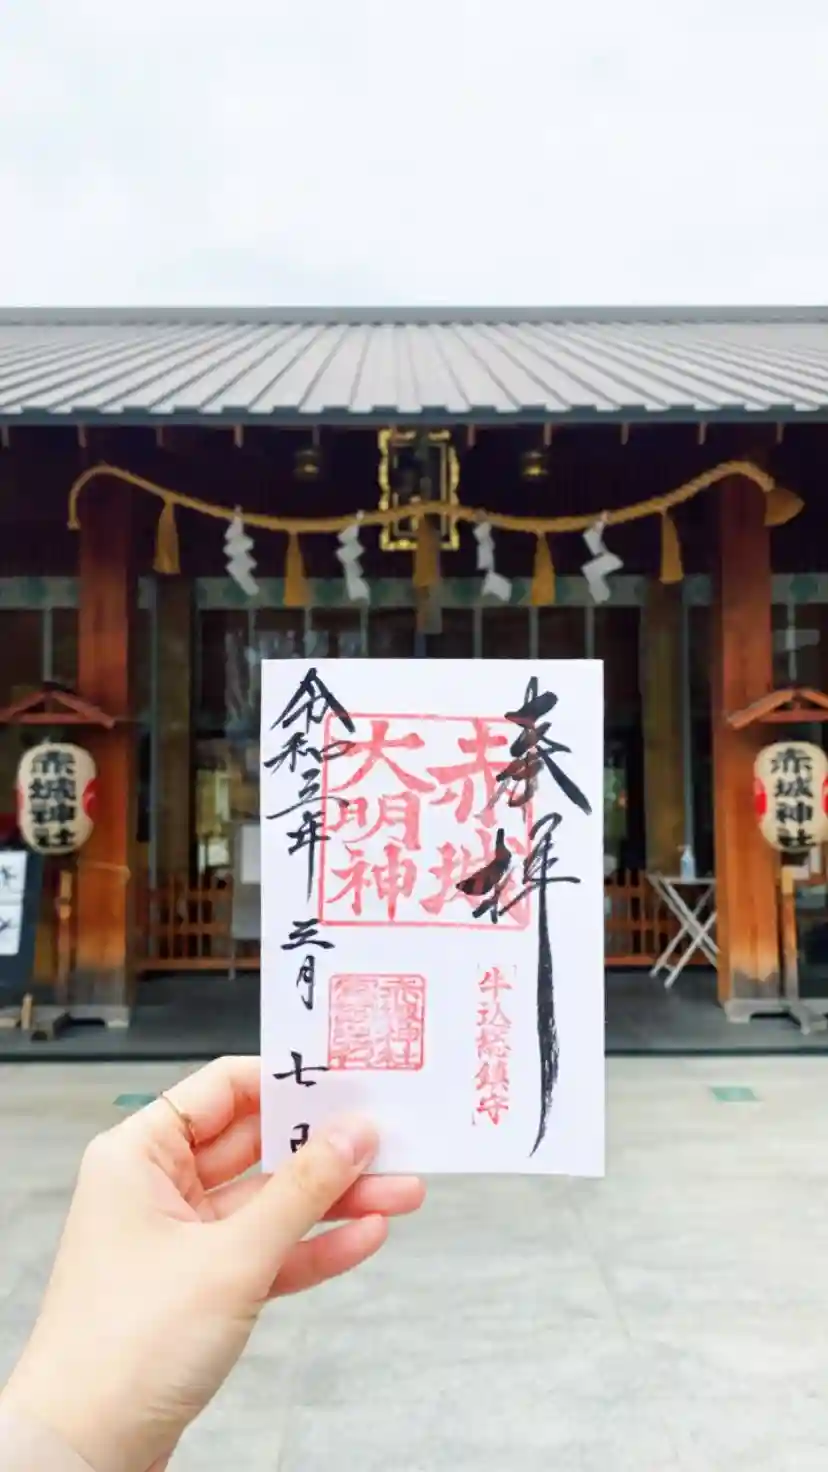 奉拝
赤城
大明神
牛込総鎮守
赤城神社
令和三年三月七日
赤城神社
赤城神社